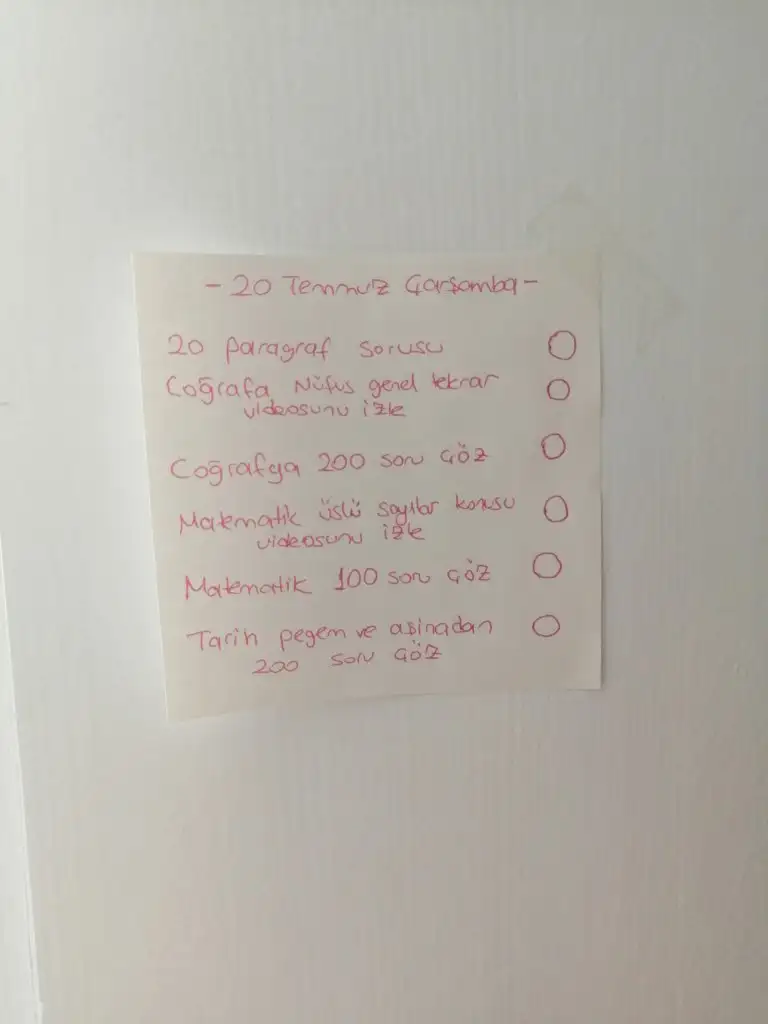 - 20 Temmuz Çarşamba -
20 paragraf sorusu
Coğrafa Nüfus genel tekrar
videosunu izle
Coğrafya 200 soru çöz
Matematik üslü sayılar konusu
videosunu izle
Matematik 100 soru çöz
Tarih pegem ve asinadan
200 soru çöz